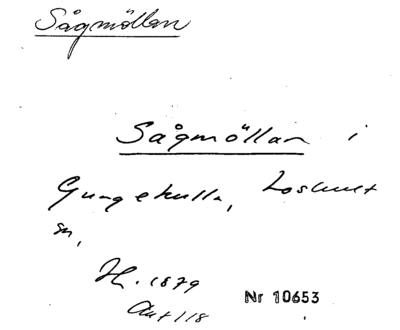 Sågmöllan
Sågmöllan i
Gungekulla, Loshult
sn,
H. 1879
Ant 118
Nr 10653